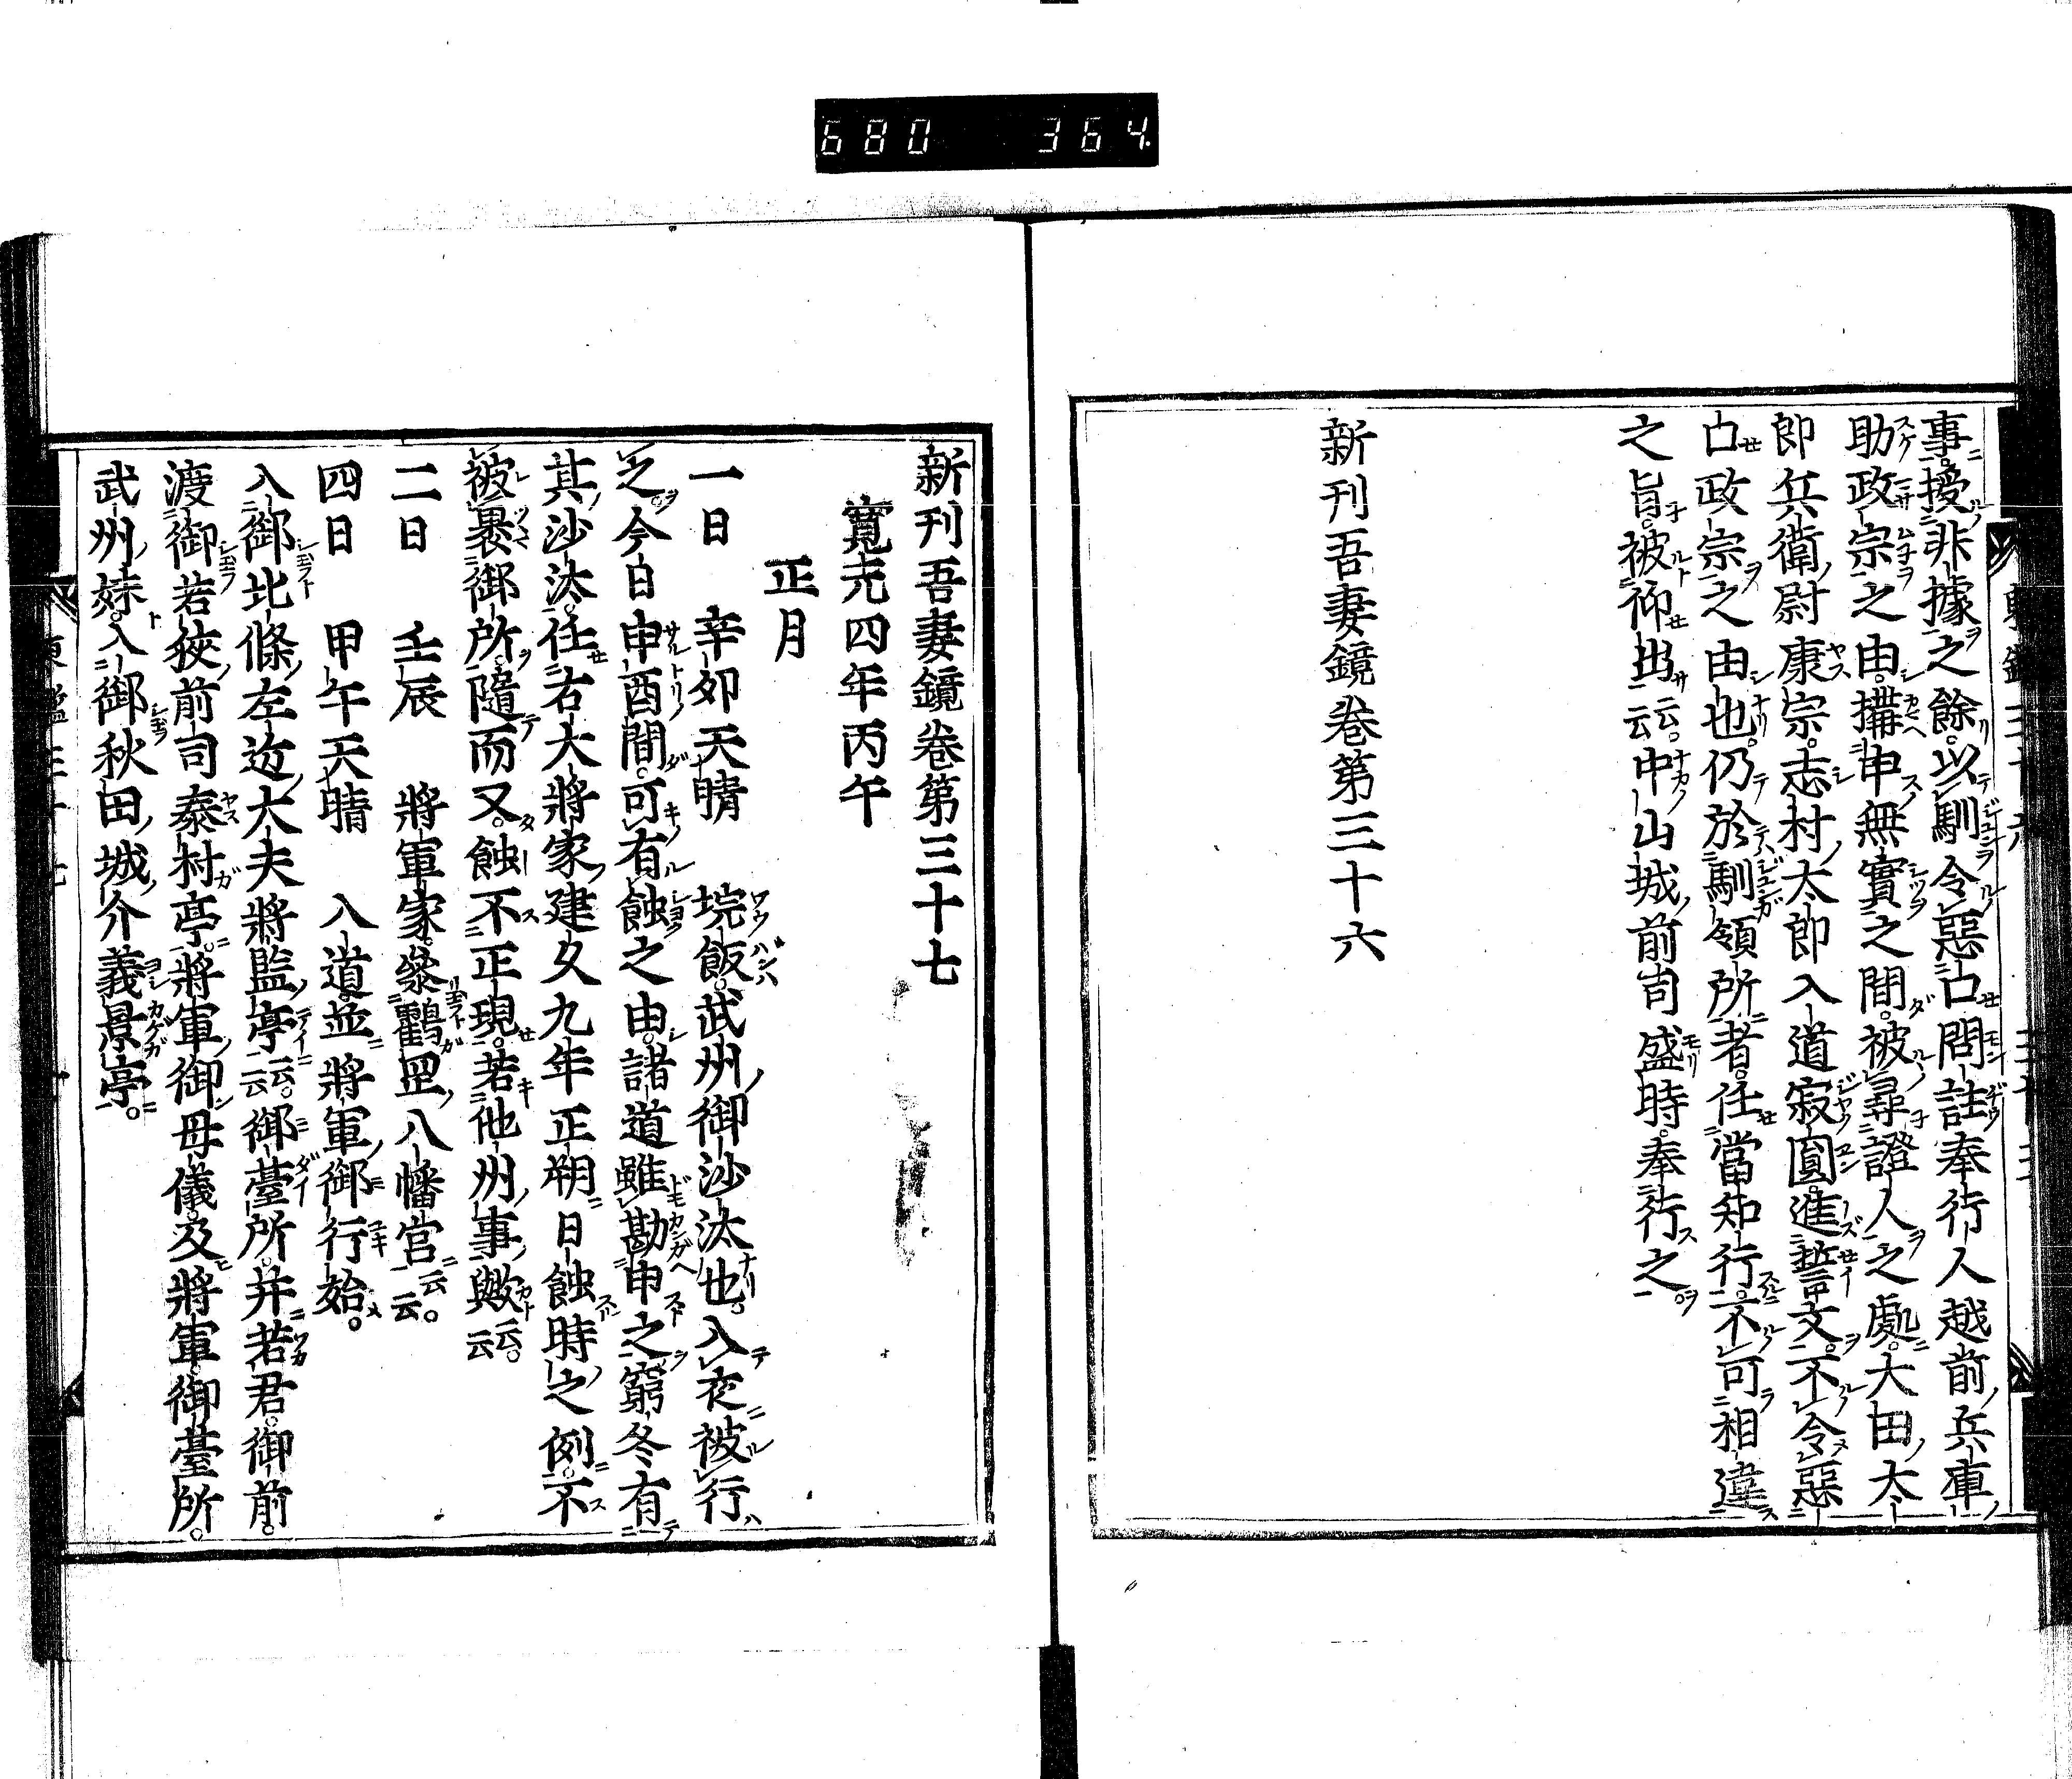 680 364
事授非據之餘以馴令惡口問註奉行人越前兵庫
助政宗之由搆申無實之間被尋證人之處大田太
郎兵衛尉康宗志村太郎入道寂圓進誓文不令惡
口政宗之由也仍於馴領所者任當知行不可相違
之旨被仰出云云中山城前司盛時奉行之
新刊吾妻鏡卷第三十六
新刊吾妻鏡卷第三十七
寬元四年丙午
正月
一日 辛卯天晴 垸飯武州御沙汰也入夜被行
之今日申酉間可有蝕之由諸道雖勘申之窮冬有
其沙汰任右大將家建久九年正朔日蝕時之例不
被裹御所隨而又蝕不正現若他州事歟云云
二日 壬辰 將軍家參鶴岡八幡宮云云
四日 甲午天晴 入道並將軍御行始
入御北條左近大夫將監亭云云御臺所并若君御前
渡御若狹前司泰村亭將軍御母儀及將軍御臺所
武州妹入御秋田城介義景亭